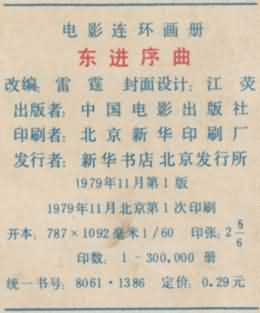 电影连环画册
东进序曲
改编：雷霆 封面设计：江荧
出版者：中国电影出版社
印刷者：北京新华印刷厂
发行者：新华书店北京发行所
1979年11月第1版
1979年11月北京第1次印刷
开本：787×1092毫米1/60 印张：2 5/6
印数：1-300,000 册
统一书号：8061·1386 定价：0.29元